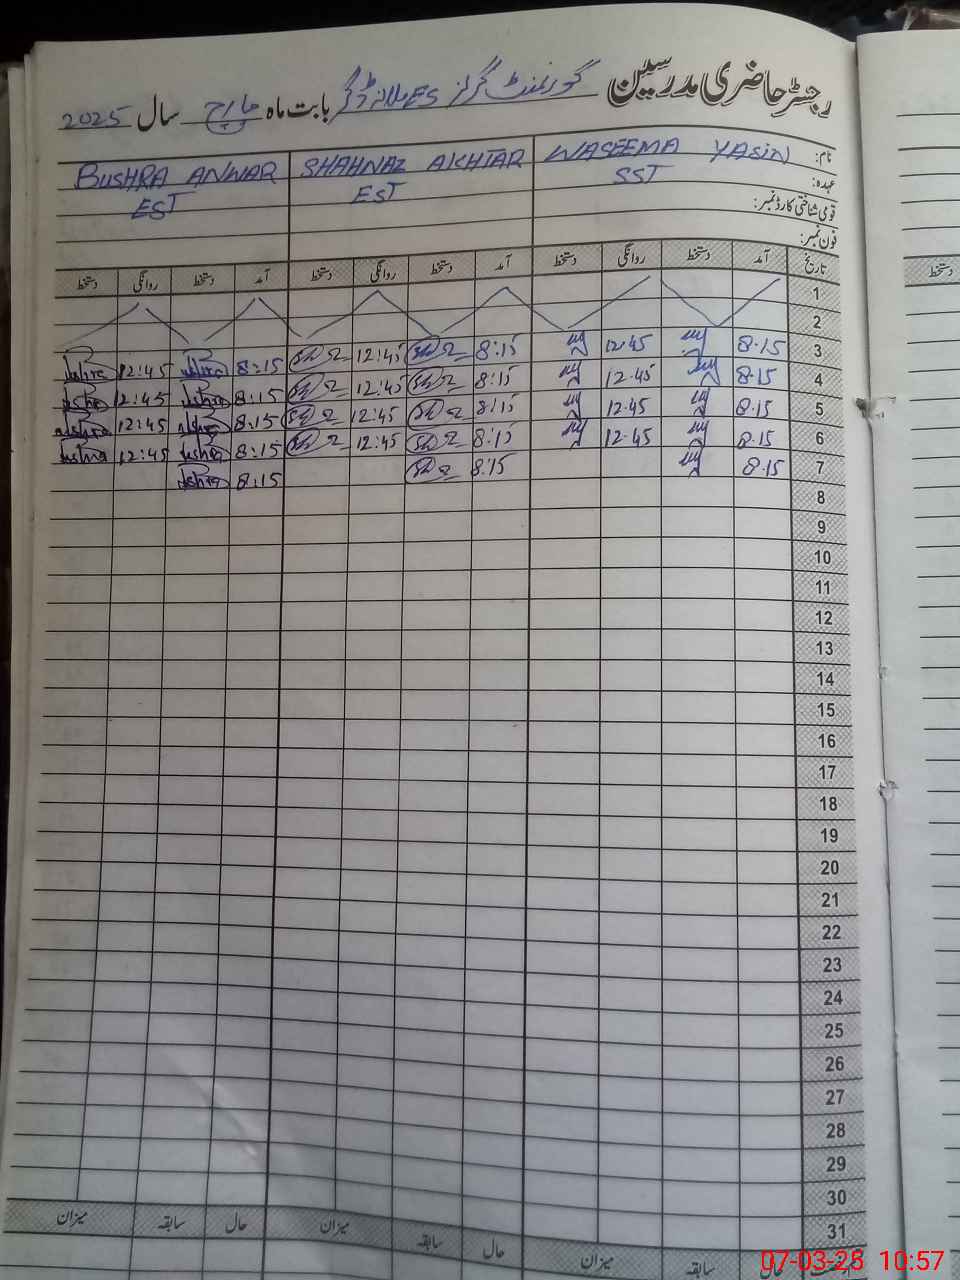 رجسٹر حاضری مدرسین گورنمنٹ گرلز ES بابت ماہ مارچ سال 2025
نام: WASEEMA YASIN SHAHNAZ AKHTAR BUSHRA ANWAR
عہدہ: SST EST EST
قومی شناختی کارڈ نمبر:
فون نمبر:
تاریخ آمد دستخط روانگی دستخط آمد دستخط روانگی دستخط آمد دستخط روانگی دستخط
1
2
3 8.15 12.45 8:15 12:45 8:15 12:45
4 8.15 12.45 8:15 12:45 8:15 12:45
5 8.15 12.45 8:15 12:45 8:15 12:45
6 8.15 12.45 8:15 12:45 8:15 12:45
7 8.15 8:15 8:15
8
9
10
11
12
13
14
15
16
17
18
19
20
21
22
23
24
25
26
27
28
29
30
31
حال سابقہ میزان حال سابقہ میزان حال سابقہ میزان
دستخط
07-03-25 10:57